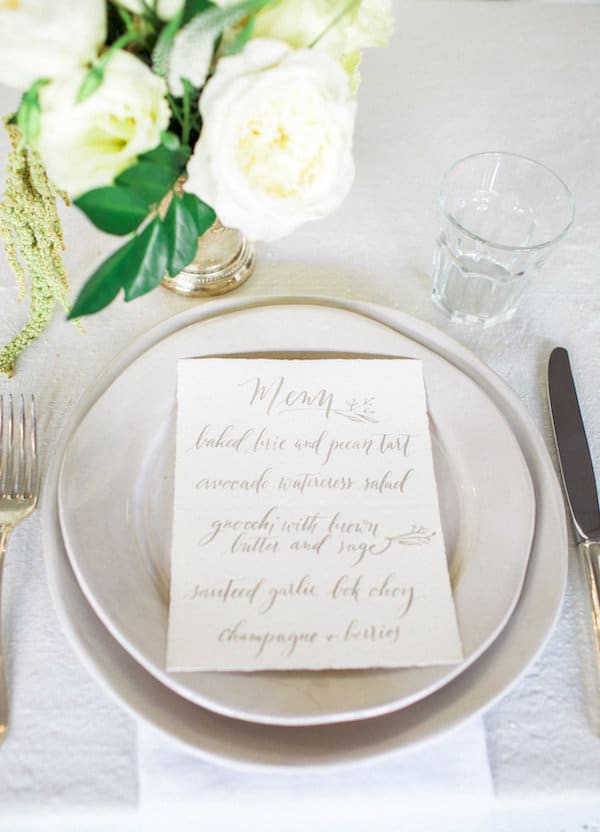 Menu
baked brie and pecan tart
avocado watercress salad
gnocchi with brown
butter and sage
sauteed garlic bok choy
champagne + berries